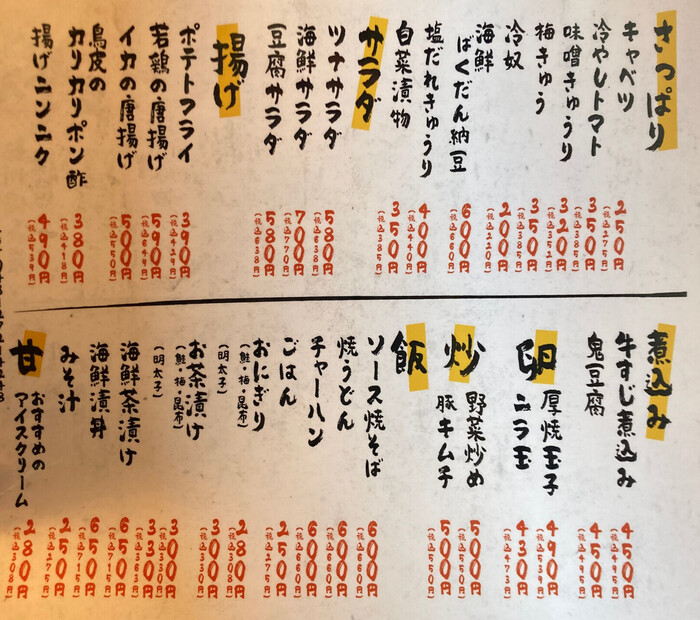 さっぱり
キャベツ 250円(税込275円)
冷やしトマト 350円(税込385円)
味噌きゅうり 320円(税込352円)
梅きゅう 350円(税込385円)
冷奴 200円(税込220円)
海鮮
ばくだん納豆 600円(税込660円)
塩だれきゅうり 400円(税込440円)
白菜漬物 350円(税込385円)
サラダ
ツナサラダ 580円(税込638円)
海鮮サラダ 700円(税込770円)
豆腐サラダ 580円(税込638円)
揚げ
ポテトフライ 390円(税込429円)
若鶏の唐揚げ 590円(税込649円)
イカの唐揚げ 500円(税込550円)
鳥皮の
カリカリポン酢 380円(税込418円)
揚げニンニク 490円(税込539円)
煮込み
牛すじ煮込み 450円(税込495円)
鬼豆腐 450円(税込495円)
卵
厚焼玉子 490円(税込539円)
ニラ玉 430円(税込473円)
炒
野菜炒め 500円(税込550円)
豚キムチ 500円(税込550円)
飯
ソース焼そば 600円(税込660円)
焼うどん 600円(税込660円)
チャーハン 600円(税込660円)
ごはん 250円(税込275円)
おにぎり
(鮭・梅・昆布) 280円(税込308円)
(明太子) 300円(税込330円)
お茶漬け
(鮭・梅・昆布) 300円(税込330円)
(明太子) 330円(税込363円)
海鮮茶漬け 650円(税込715円)
海鮮漬丼 650円(税込715円)
みそ汁 250円(税込275円)
甘
おすすめの
アイスクリーム 280円(税込308円)